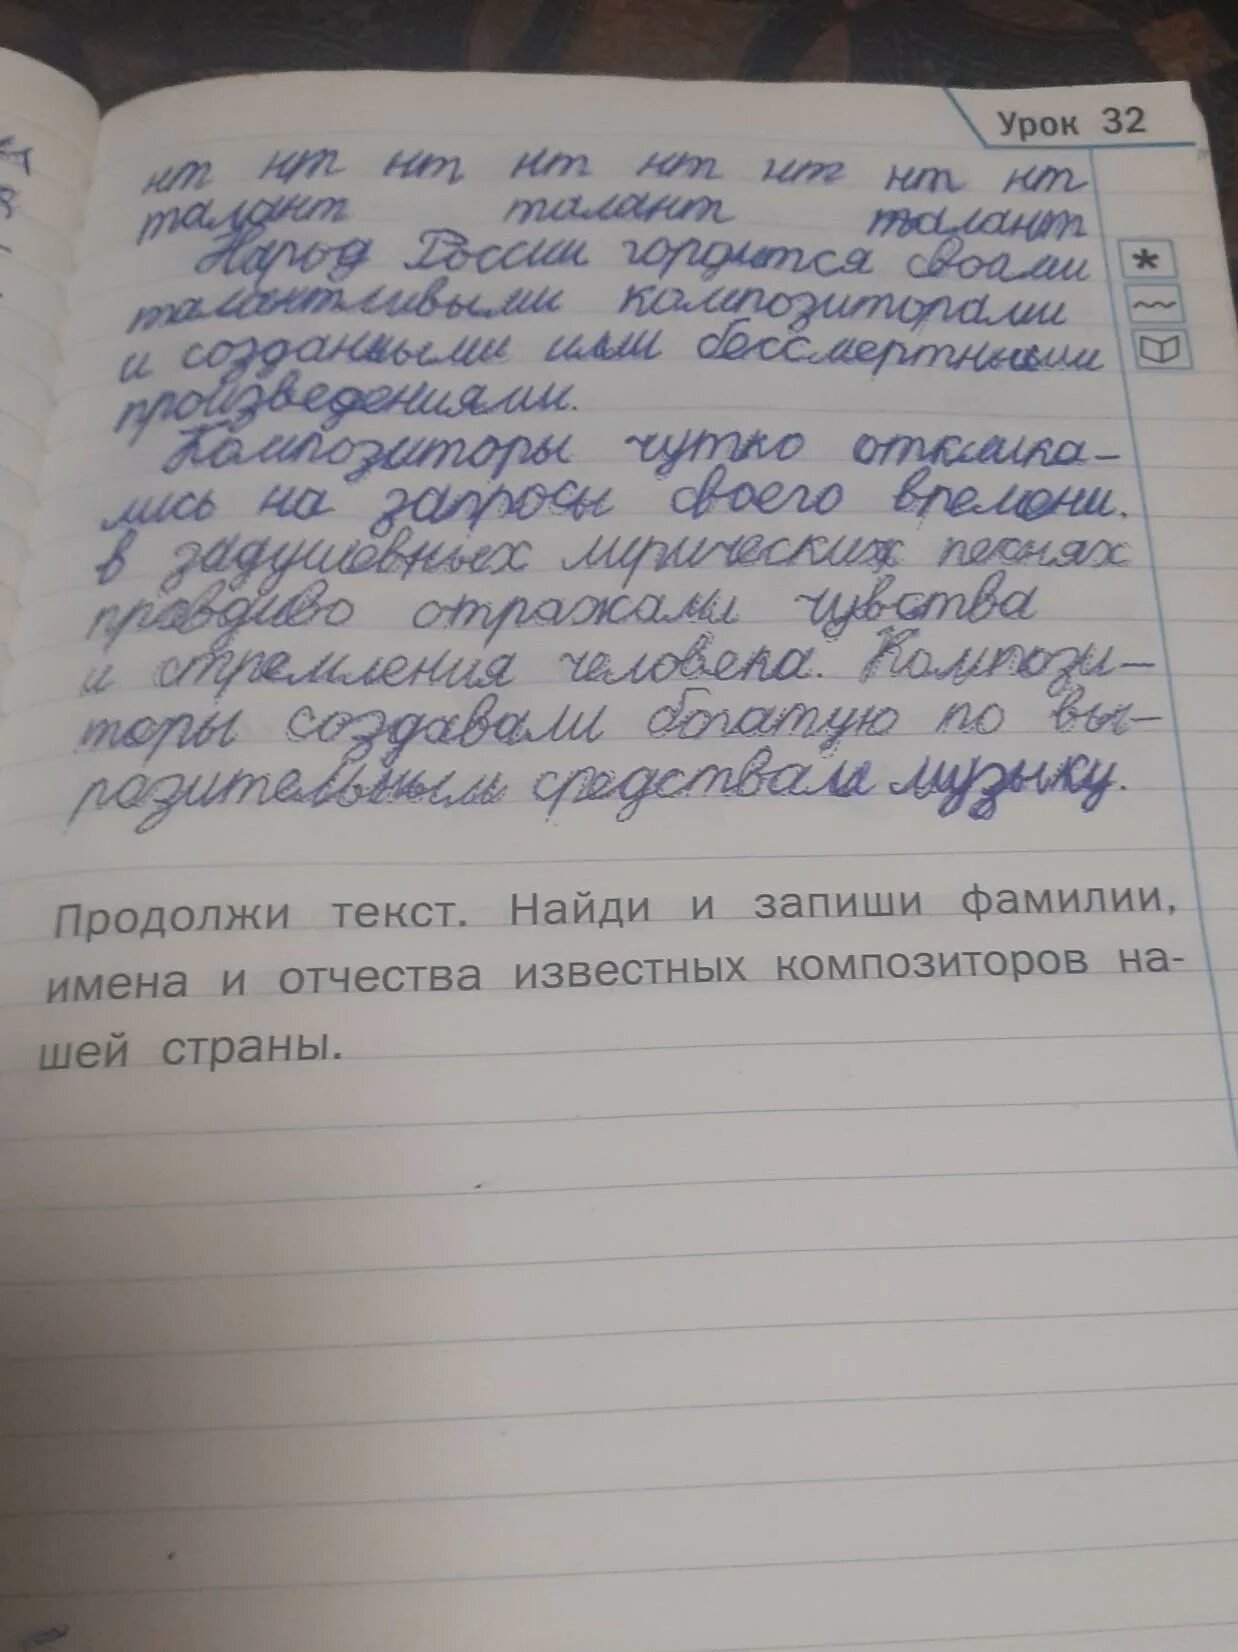 Урок 32
нт нт нт нт нт нт нт нт
талант талант талант
Народ России гордится своими
талантливыми композиторами
и созданными ими бессмертными
произведениями.
Композиторы чутко отклика-
лись на запросы своего времени.
в задушевных лирических песнях
правдиво отражали чувства
и стремления человека. Компози-
торы создавали богатую по вы-
разительным средствам музыку.
Продолжи текст. Найди и запиши фамилии,
имена и отчества известных композиторов на-
шей страны.